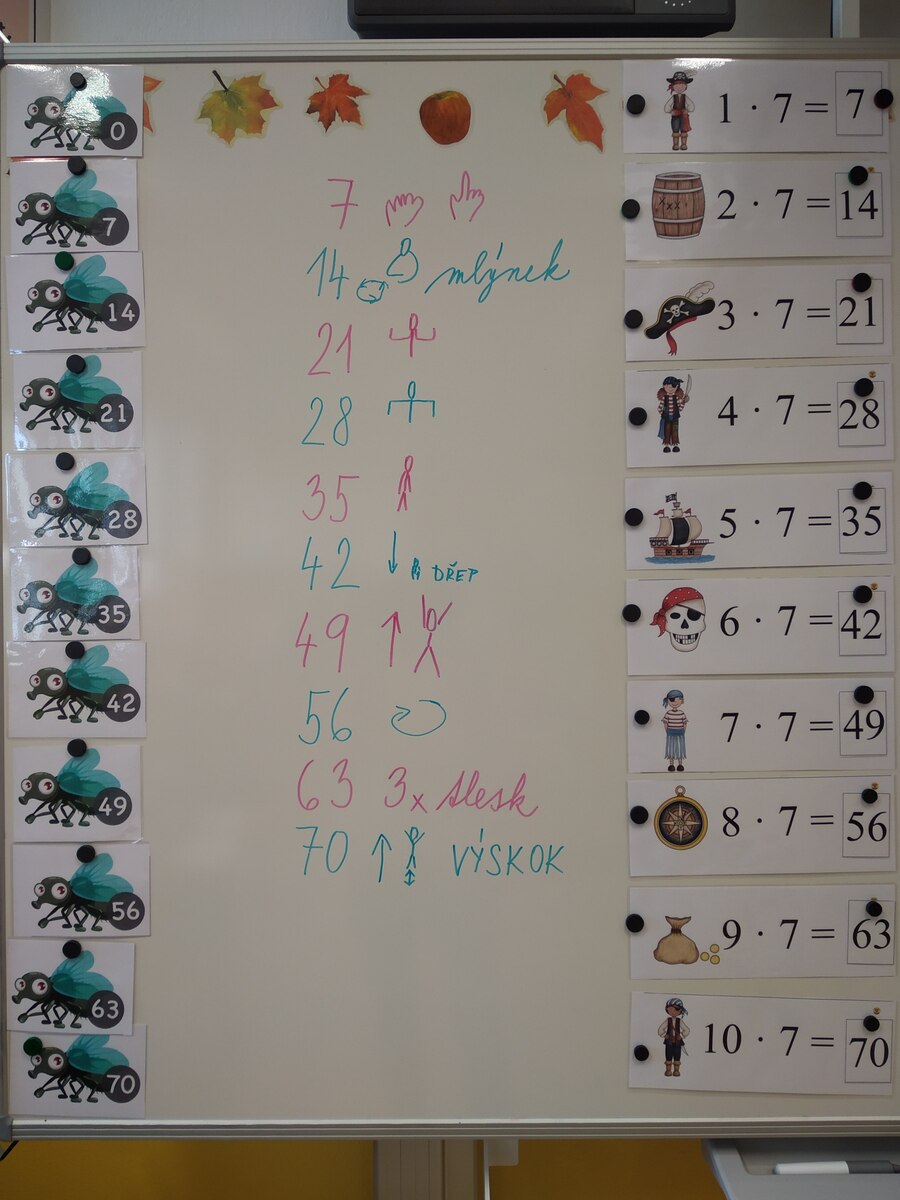 0
7
14
21
28
35
42
49
56
63
70
7
14 mlýnek
21
28
35
42 DŘEP
49
56
63 3x tlesk
70 VÝSKOK
1 · 7 = 7
2 · 7 = 14
3 · 7 = 21
4 · 7 = 28
5 · 7 = 35
6 · 7 = 42
7 · 7 = 49
8 · 7 = 56
9 · 7 = 63
10 · 7 = 70